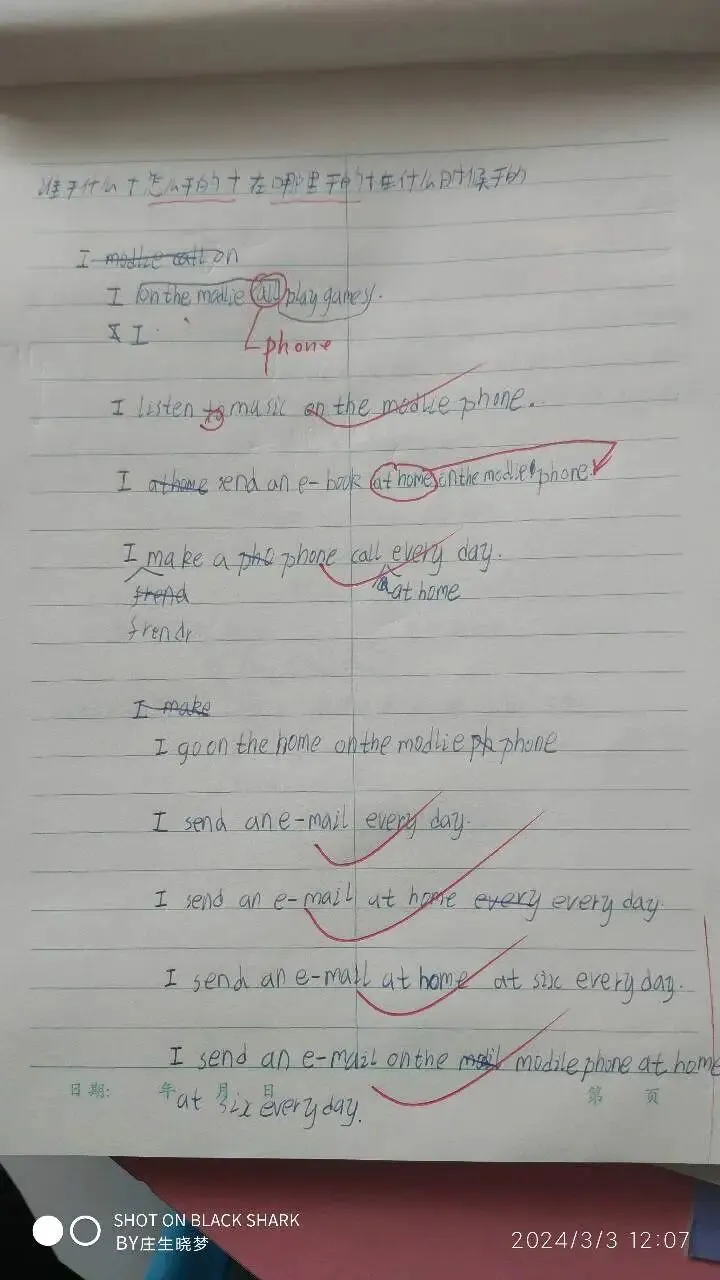 谁干什么+怎么干的+在哪里干的+在什么时候干的
I modlie call on
I on the modlie call play games.
I.
phone
I listen to music on the modlie phone.
I at home send an e-book at home on the modlie phone.
I make a pho phone call every day.
frend at home
frendr
I make
I go on the home on the modlie ph phone
I send an e-mail every day.
I send an e-mail at home every every day.
I send an e-mail at home at six every day.
I send an e-mail on the modile phone at home
日期: 年 月 日 第 页
at six every day.
SHOT ON BLACK SHARK
BY庄生晓梦
2024/3/3 12:07